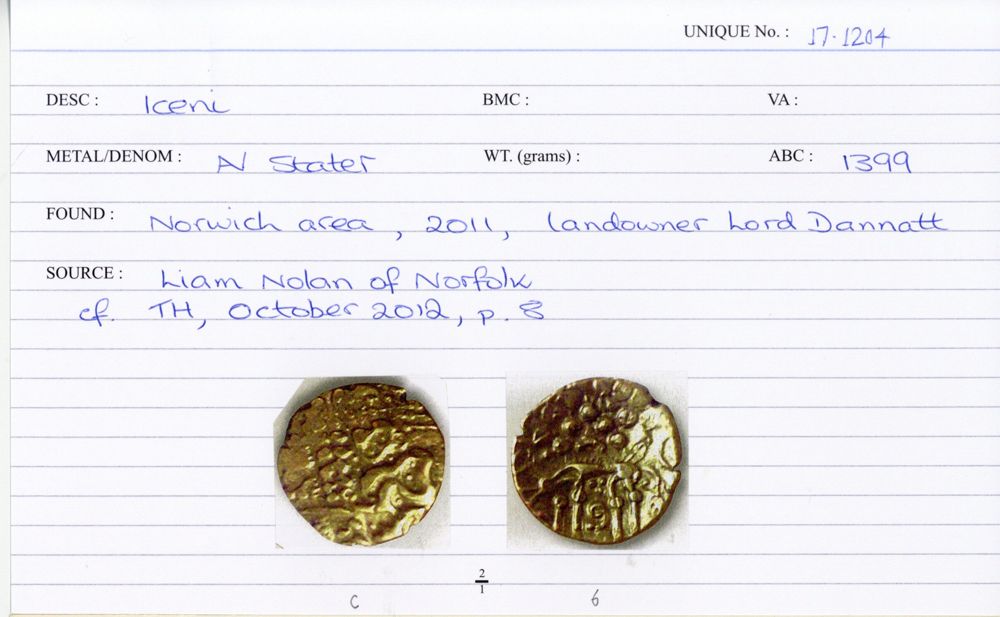 UNIQUE No. : 17·1204
DESC : Iceni BMC : VA :
METAL/DENOM : AV Stater WT. (grams) : ABC : 1399
FOUND : Norwich area, 2011, landowner Lord Dannatt
SOURCE : Liam Nolan of Norfolk
cf. TH, October 2012, p. 8
2
1
C 6